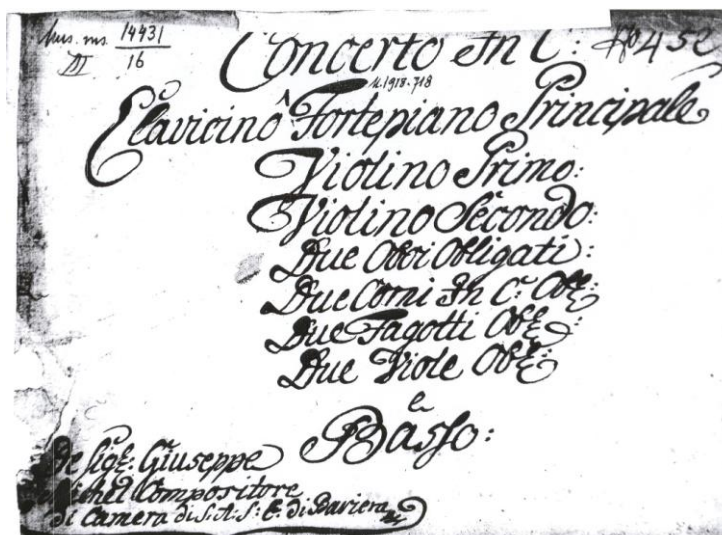 Mus. ms. 14431
III 16
Concerto In C: No 452
M.1918.718
Clavicino ô Fortepiano Principale
Violino Primo:
Violino Secondo:
Due Oboi Obligati:
Due Corni In C: Obl:
Due Fagotti Obl:
Due Viole Obl:
e
Basso:
De Sigr: Giuseppe
Michel Compositore
di Camera di S: A: S: E: di Baviera